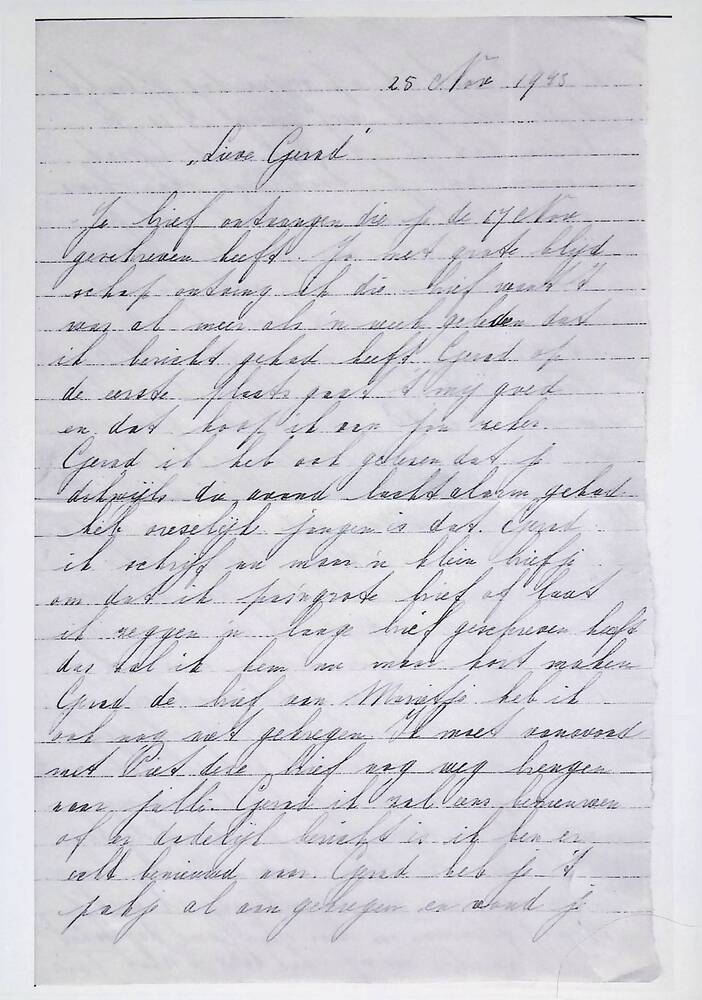 25 Nov 1943
„Lieve Gerad"
Je brief ontvangen die je de 17 Nov
geschreven heeft. Ja met grote blijd
schap ontving ik die brief want 't
was al meer als 'n week geleden dat
ik bericht gehad heeft Gerad op
de eerste plaats gaat 't mij goed
en dat hoop ik van jou zeker.
Gerad ik heb ook gelezen dat je
dikwijls die avond luchtalarm gehad
heb vreselijk jongen is dat. Gerad
ik schrijf nu maar 'n klein briefje
om dat ik pas grote brief of laat
ik zeggen 'n lange brief geschreven heeft
dus zal ik hem nu maar kort maken
Gerad de brief van Marietje heb ik
ook nog niet gekregen Ik moet vanavond
met Piet deze brief nog weg brengen
naar Gerad ik zal ons benieuwen
of er dadelijk bericht is ik ben er
echt benieuwd naar. Gerad heb je 't
pakje al aan gekregen en vond je